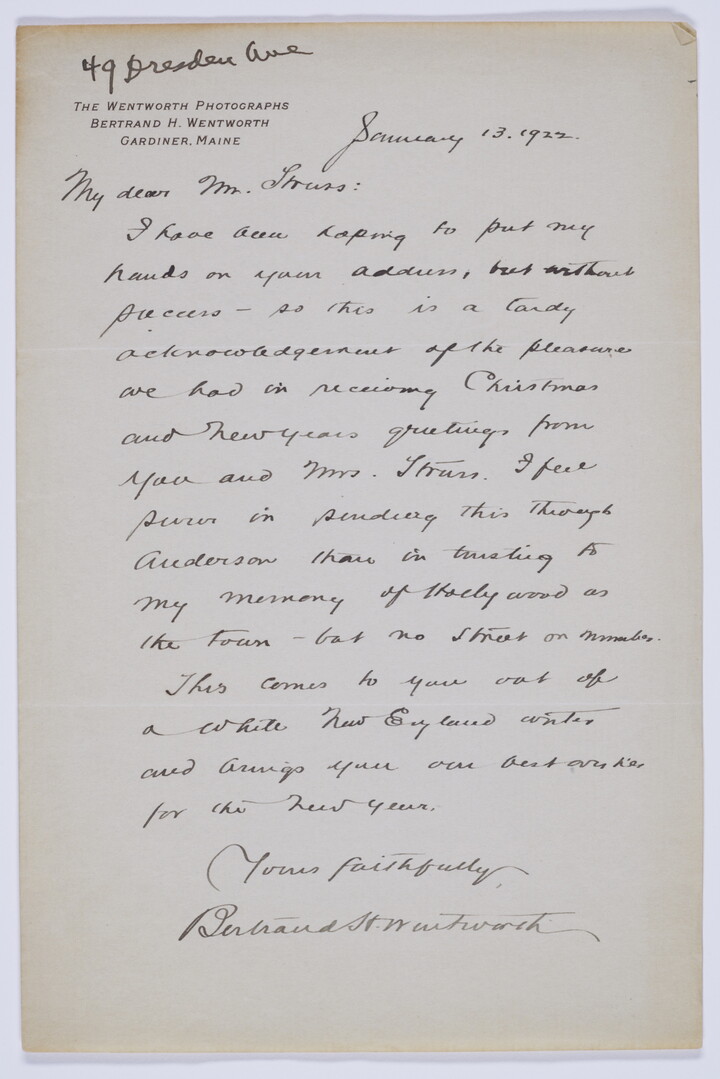 49 Dresden Ave
THE WENTWORTH PHOTOGRAPHS
BERTRAND H. WENTWORTH
GARDINER, MAINE
January 13. 1922.
My dear Mr. Struss:
I have been hoping to put my
hands on your address, but without
success – so this is a tardy
acknowledgement of the pleasure
we had in receiving Christmas
and New Years greetings from
you and Mrs. Struss. I feel
surer in sending this through
Anderson than in trusting to
my memory of Hollywood as
the town – but no street or number.
This comes to you out of
a white New England winter
and brings you our best wishes
for the New Year.
Yours faithfully,
Bertrand H. Wentworth